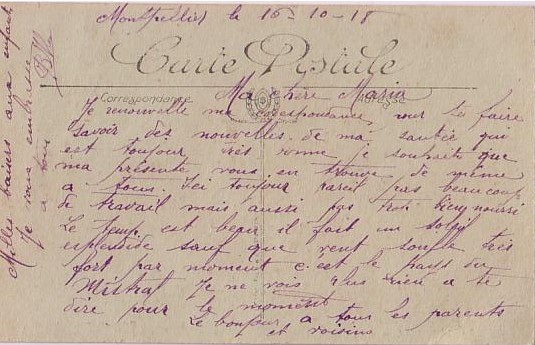 Montpellier le 16-10-18
Carte Postale
Correspondance
Adresse
Ma chère Maria
Je renouvelle ma correspondance pour te faire
savoir des nouvelles de ma santée qui
est toujour très bonne je souhaite que
ma présente vous en trouve de même
a tous. Ici toujour pareil pas beaucoup
de travail mais aussi pas trop bien nourri
Le temp est beau il fait un soleil
esplendide sauf que vent soufle très
fort par moment c'est le pays du
Mistral Je ne vois plus rien a te
dire pour le moment
Le bonjour a tous les parents
et voisins
Milles baisers aux enfants
Je vous embrasse
a tous